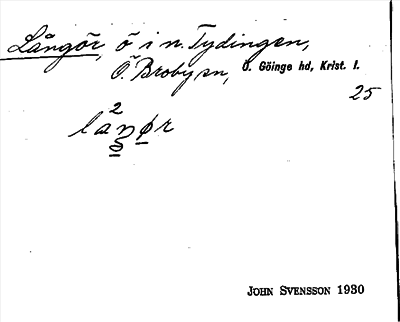 Långör, ö i n. Tydingen,
Ö. Broby sn, Ö. Göinge hd, Krist. l.
25
2
lanør
JOHN SVENSSON 1930